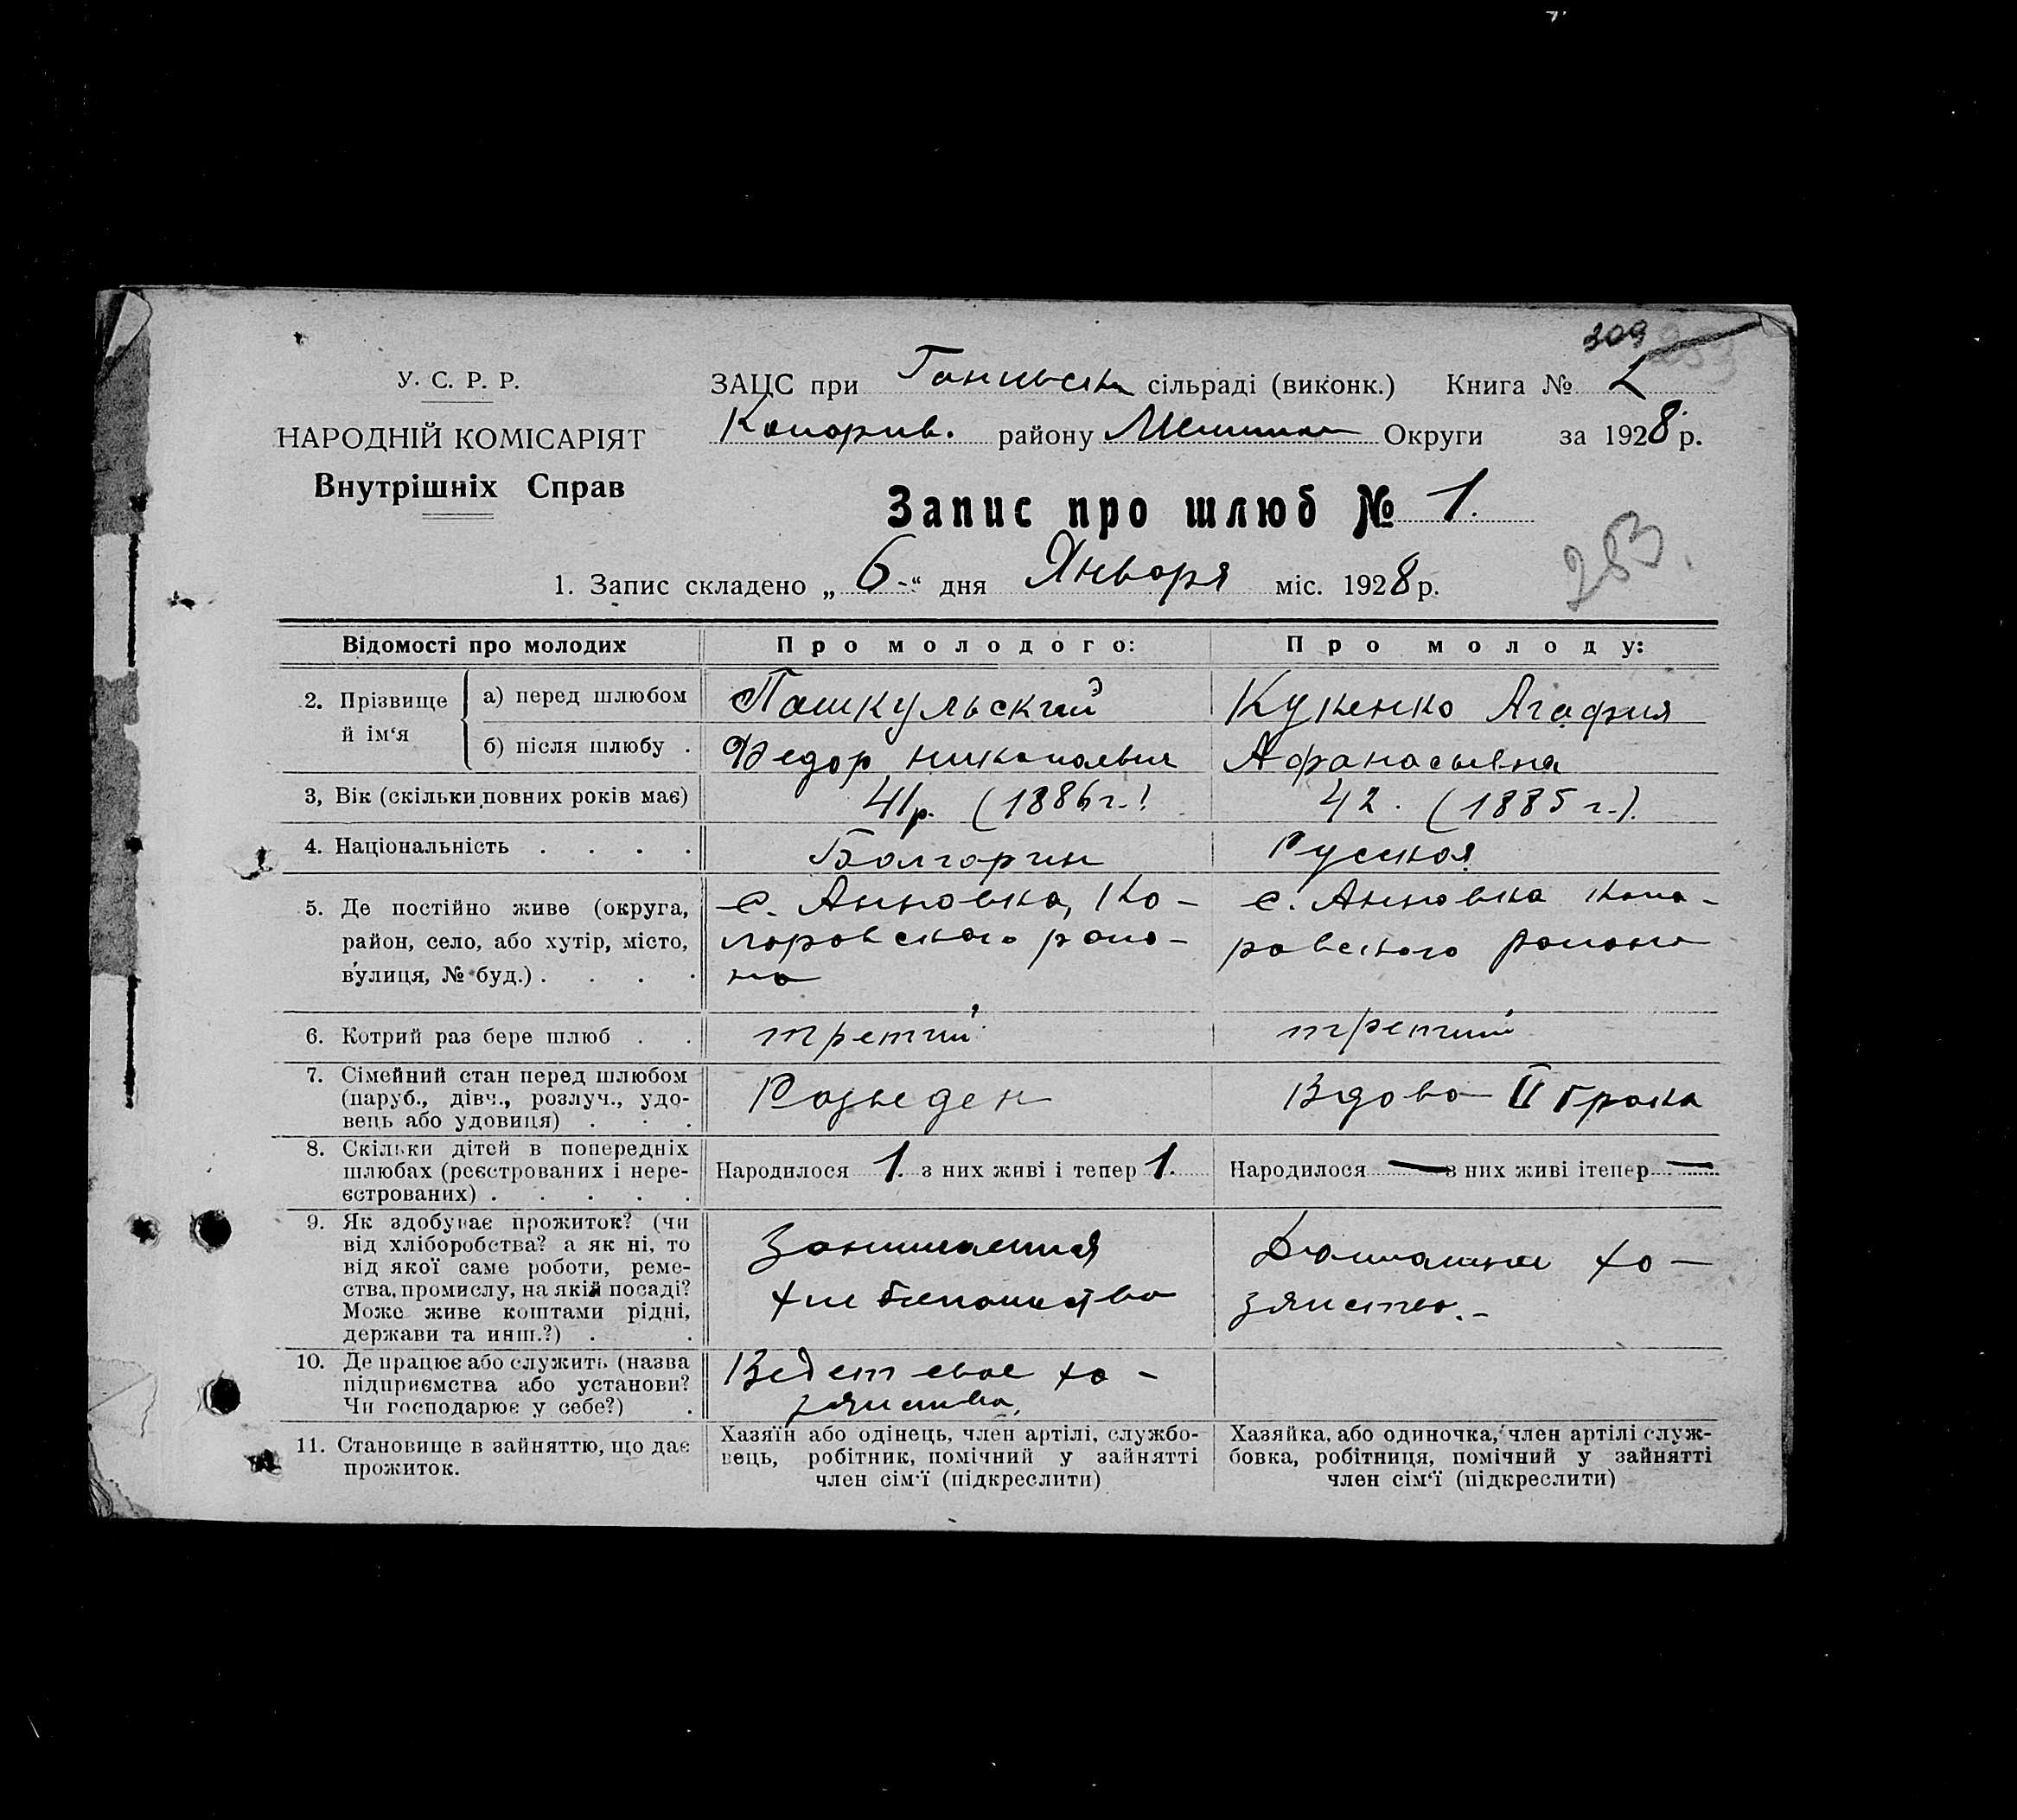 309
У. С. Р. Р.
ЗАЦС при сільраді (виконк.) Книга №
НАРОДНІЙ КОМІСАРІЯТ
району Округи за 1928 р.
Внутрішніх Справ
Запис про шлюб № 1.
253.
1. Запис складено „ 6-“ дня Января міс. 1928 р.
Відомості про молодих
Про молодого:
Про молоду:
2. Прізвище й ім‘я
а) перед шлюбом
Пашкульский
Кукенко Агафия
б) після шлюбу .
Федор Николаевич
Афанасьевна
3, Вік (скільки повних років має)
41р. (1886 г.)
42. (1885 г.).
4. Національність . . . .
Болгарин
Русская
5. Де постійно живе (округа,
район, село, або хутір, місто,
вулиця, № буд.) . . . .
с. Анновка, Ко-
ларовского райо-
на
с. Анновка Кола-
ровского района
6. Котрий раз бере шлюб . .
третий
третий
7. Сімейний стан перед шлюбом
(паруб., дівч., розлуч., удо-
вець або удовиця) . . .
Разведен
Вдова II брака
8. Скільки дітей в попередніх
шлюбах (реєстрованих і нере-
єстрованих) . . . . .
Народилося 1. з них живі і тепер 1.
Народилося — з них живі ітепер —
9. Як здобуває прожиток? (чи
від хліборобства? а як ні, то
від якої саме роботи, реме-
ства, промислу, на якій посаді?
Може живе коштами рідні,
держави та инш.?) . .
Занимается
хлебопашество
Домашнее хо-
зяйство.-
10. Де працює або служить (назва
підприємства або установи?
Чи господарює у себе?) .
Ведет свое хо-
зяйство.
11. Становище в зайняттю, що дає
прожиток.
Хазяїн або одінець, член артілі, службо-
вець, робітник, помічний у зайнятті
член сім‘ї (підкреслити)
Хазяйка, або одиночка, член артілі служ-
бовка, робітниця, помічний у зайнятті
член сім‘ї (підкреслити)